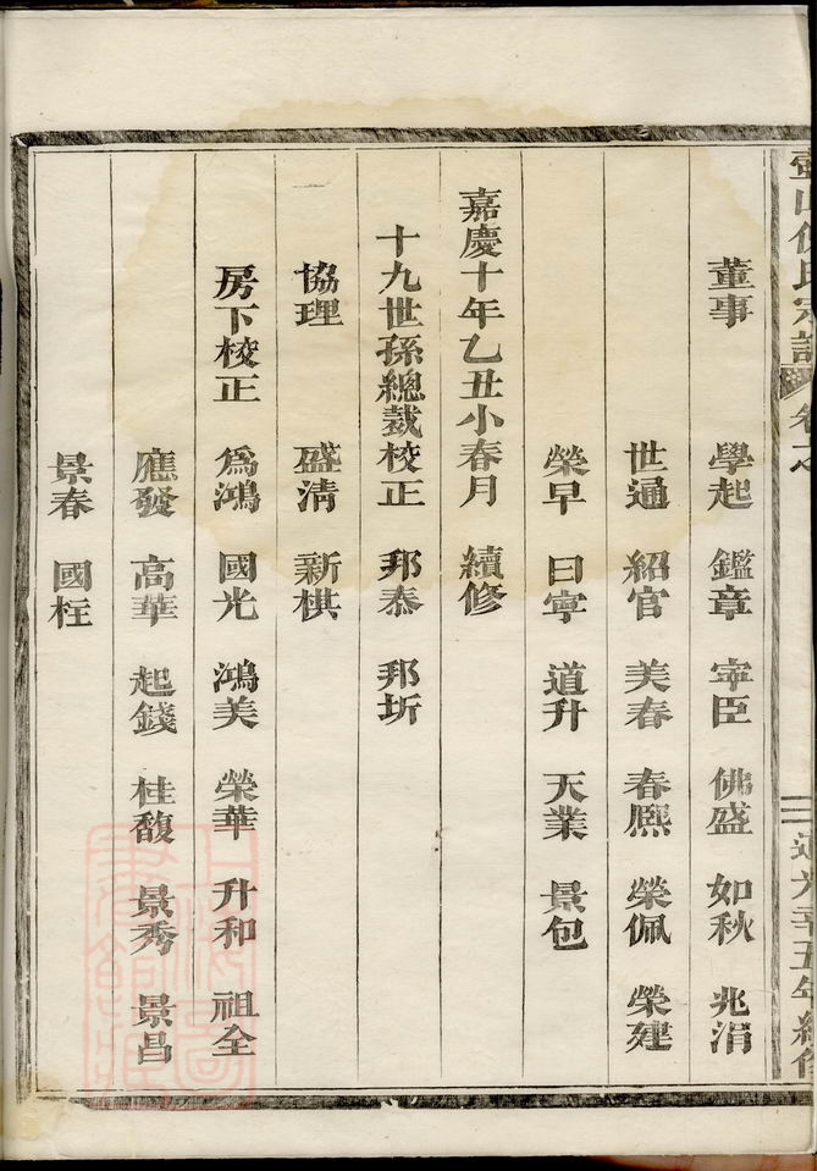 董事 學起 鑑章 寜臣 佛盛 如秋 兆涓
世通 紹官 美春 春熈 榮佩 榮建
榮早 曰寧 道升 天業 景包
嘉慶十年乙丑小春月 續修
十九世孫總裁校正 邦泰 邦圻
協理 盛清 新棋
房下校正 爲鴻 國光 鴻美 榮華 升和 祖全
應發 高華 起錢 桂馥 景秀 景昌
景春 國枉